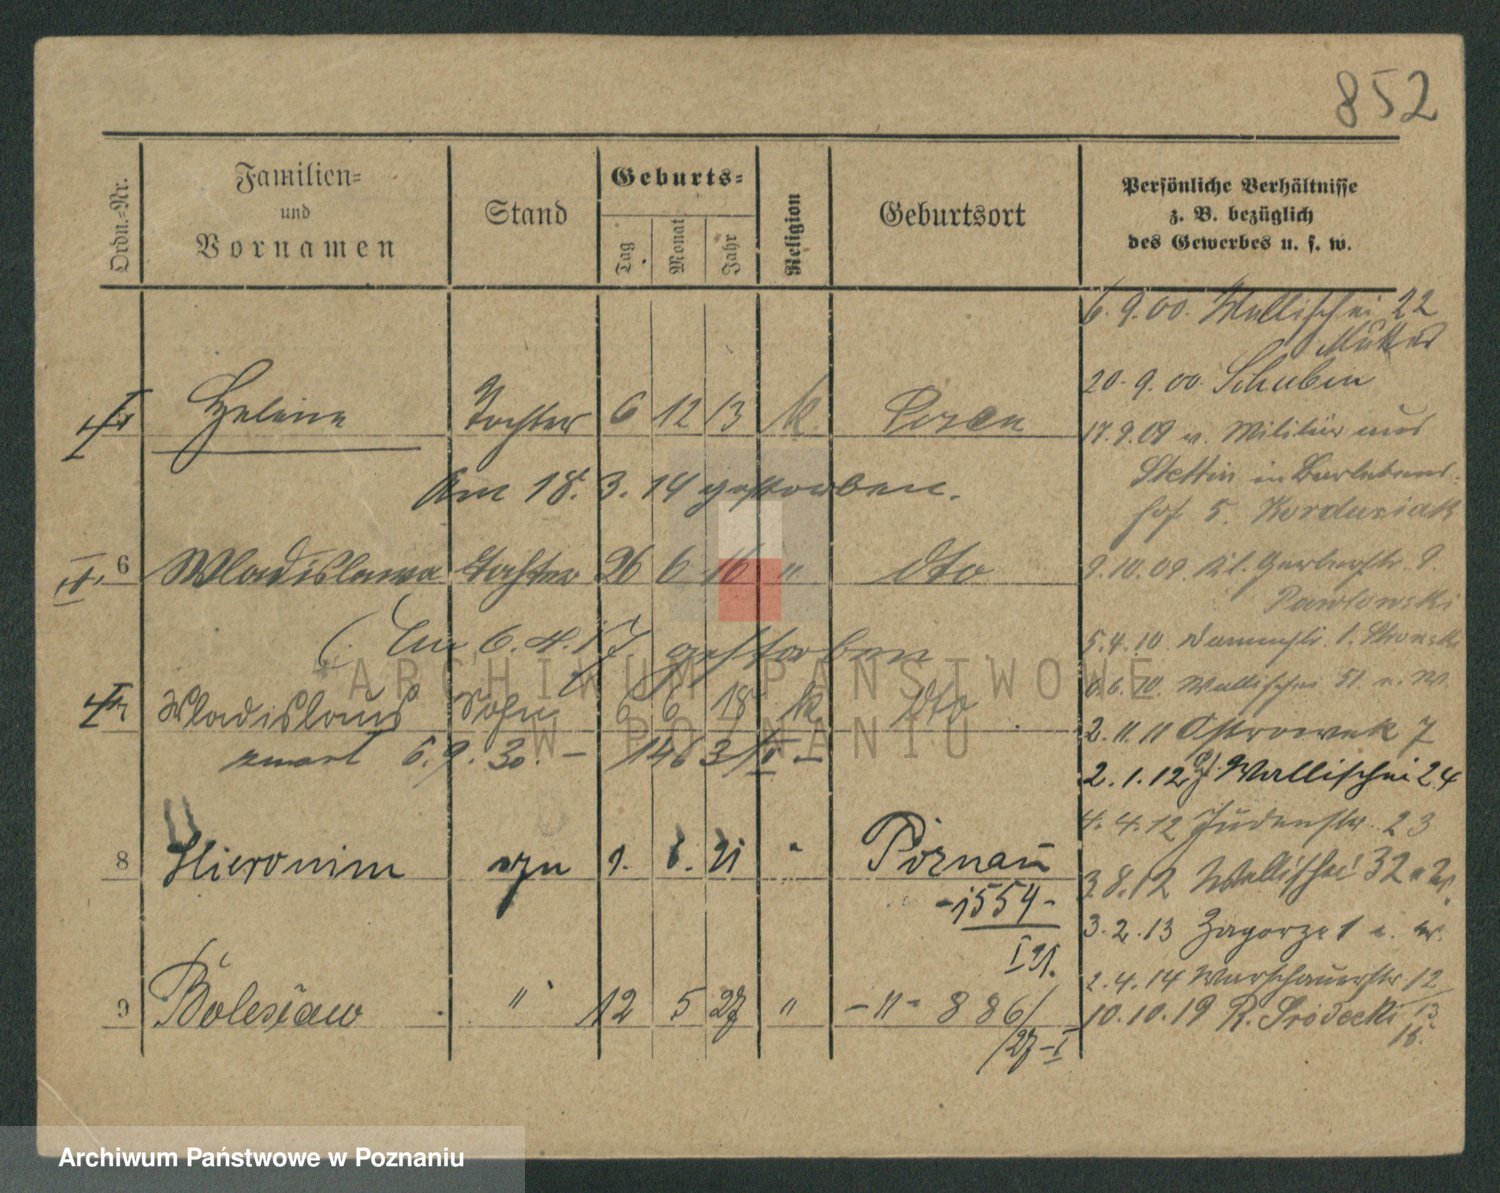 852
Ordn.-Nr.
Familien-
und
Vornamen
Stand
Geburts-
Tag
Monat
Jahr
Religion
Geburtsort
Persönliche Verhältnisse
z. B. bezüglich
des Gewerbes u. s. w.
6.9.00. Wallischei 22
Mutter
20.9.00 Schubin
Helene Tochter 6 12 13 k. Posen
17.9.09 v. Militär aus
Stettin in
hof 5. Kordusiak
Am 18. 3. 14 gestorben.
6 Wladislawa Tochter 26 6 16 " dto
9.10.09. Gerberstr. 9.
Pawlowski
Am 6. 4. 17 gestorben
5.4.10
Wladislaus Sohn 6 6 18 k dto
6.6.10. Wallischei 51. u. W.
zmarł 6.9.30. – 1463/II –
2.11.11 Ostrowek 7
2.1.12 Wallischei 24
4.4.12 Judenstr. 23
8 Hieronim syn 1. 8. 21 " Poznań
3.8.12 Wallischei 32 u. W.
-1554-
3.2.13 Zagorze 1 u. W.
I 21.
2.4.14 Warschauerstr 12
9 Bolesław " 12 5 27 " – " – 886/
10.10.19 R. Śródecki 13
/27–I
15.
ARCHIWUM PAŃSTWOWE
W POZNANIU
Archiwum Państwowe w Poznaniu